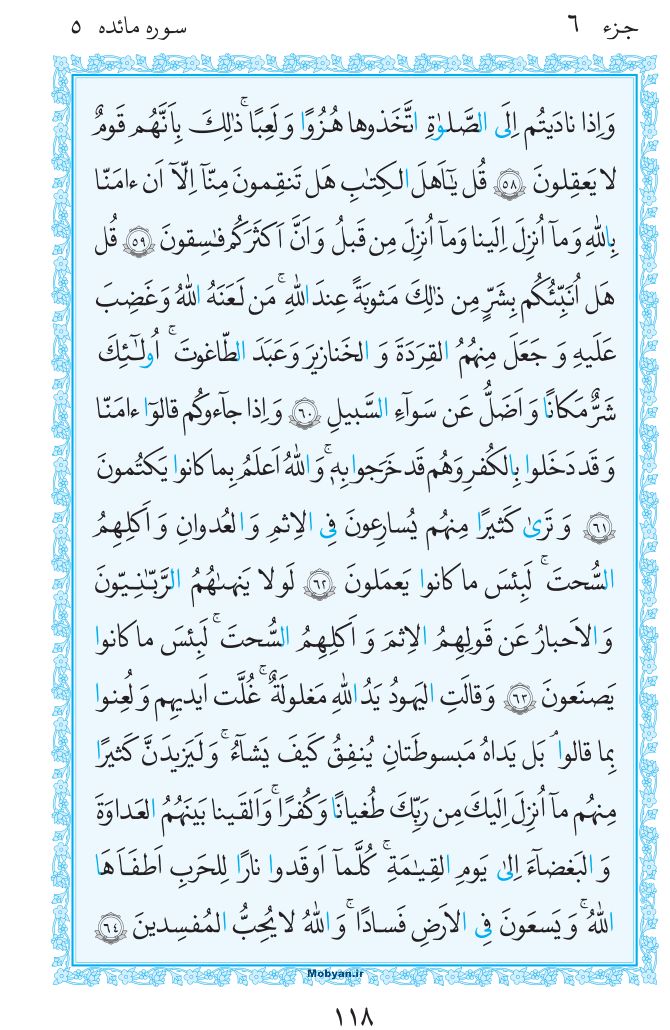 جزء ٦ سوره مائده ٥
وَاِذا نادَيتُم اِلَى الصَّلوٰةِ اتَّخَذوها هُزُوًا وَلَعِبًا ۚ ذٰلِكَ بِاَنَّهُم قَومٌ
لا يَعقِلونَ ﴿٥٨﴾ قُل يٰٓاَهلَ الكِتٰبِ هَل تَنقِمونَ مِنّآ اِلّآ اَن ءامَنّا
بِاللهِ وَمآ اُنزِلَ اِلَينا وَمآ اُنزِلَ مِن قَبلُ وَاَنَّ اَكثَرَكُم فٰسِقونَ ﴿٥٩﴾ قُل
هَل اُنَبِّئُكُم بِشَرٍّ مِن ذٰلِكَ مَثوبَةً عِندَ اللهِ ۚ مَن لَعَنَهُ اللهُ وَغَضِبَ
عَلَيهِ وَجَعَلَ مِنهُمُ القِرَدَةَ وَالخَنازيرَ وَعَبَدَ الطّاغوتَ ۚ اُولٰٓئِكَ
شَرٌّ مَكانًا وَاَضَلُّ عَن سَوآءِ السَّبيلِ ﴿٦٠﴾ وَاِذا جآءوكُم قالوٓا ءامَنّا
وَقَد دَخَلوا بِالكُفرِ وَهُم قَد خَرَجوا بِهٖ ۚ وَاللهُ اَعلَمُ بِما كانوا يَكتُمونَ
﴿٦١﴾ وَتَرىٰ كَثيرًا مِنهُم يُسارِعونَ فِى الاِثمِ وَالعُدوانِ وَاَكلِهِمُ
السُّحتَ ۚ لَبِئسَ ما كانوا يَعمَلونَ ﴿٦٢﴾ لَولا يَنهىٰهُمُ الرَّبّٰنِيّونَ
وَالاَحبارُ عَن قَولِهِمُ الاِثمَ وَاَكلِهِمُ السُّحتَ ۚ لَبِئسَ ما كانوا
يَصنَعونَ ﴿٦٣﴾ وَقالَتِ اليَهودُ يَدُ اللهِ مَغلولَةٌ ۚ غُلَّت اَيديهِم وَلُعِنوا
بِما قالوا ۘ بَل يَداهُ مَبسوطَتانِ يُنفِقُ كَيفَ يَشآءُ ۚ وَلَيَزيدَنَّ كَثيرًا
مِنهُم مآ اُنزِلَ اِلَيكَ مِن رَبِّكَ طُغيانًا وَكُفرًا ۚ وَاَلقَينا بَينَهُمُ العَداوَةَ
وَالبَغضآءَ اِلىٰ يَومِ القِيٰمَةِ ۚ كُلَّمآ اَوقَدوا نارًا لِلحَربِ اَطفَاَهَا
اللهُ ۚ وَيَسعَونَ فِى الاَرضِ فَسادًا ۚ وَاللهُ لا يُحِبُّ المُفسِدينَ ﴿٦٤﴾
Mobyan.ir
١١٨